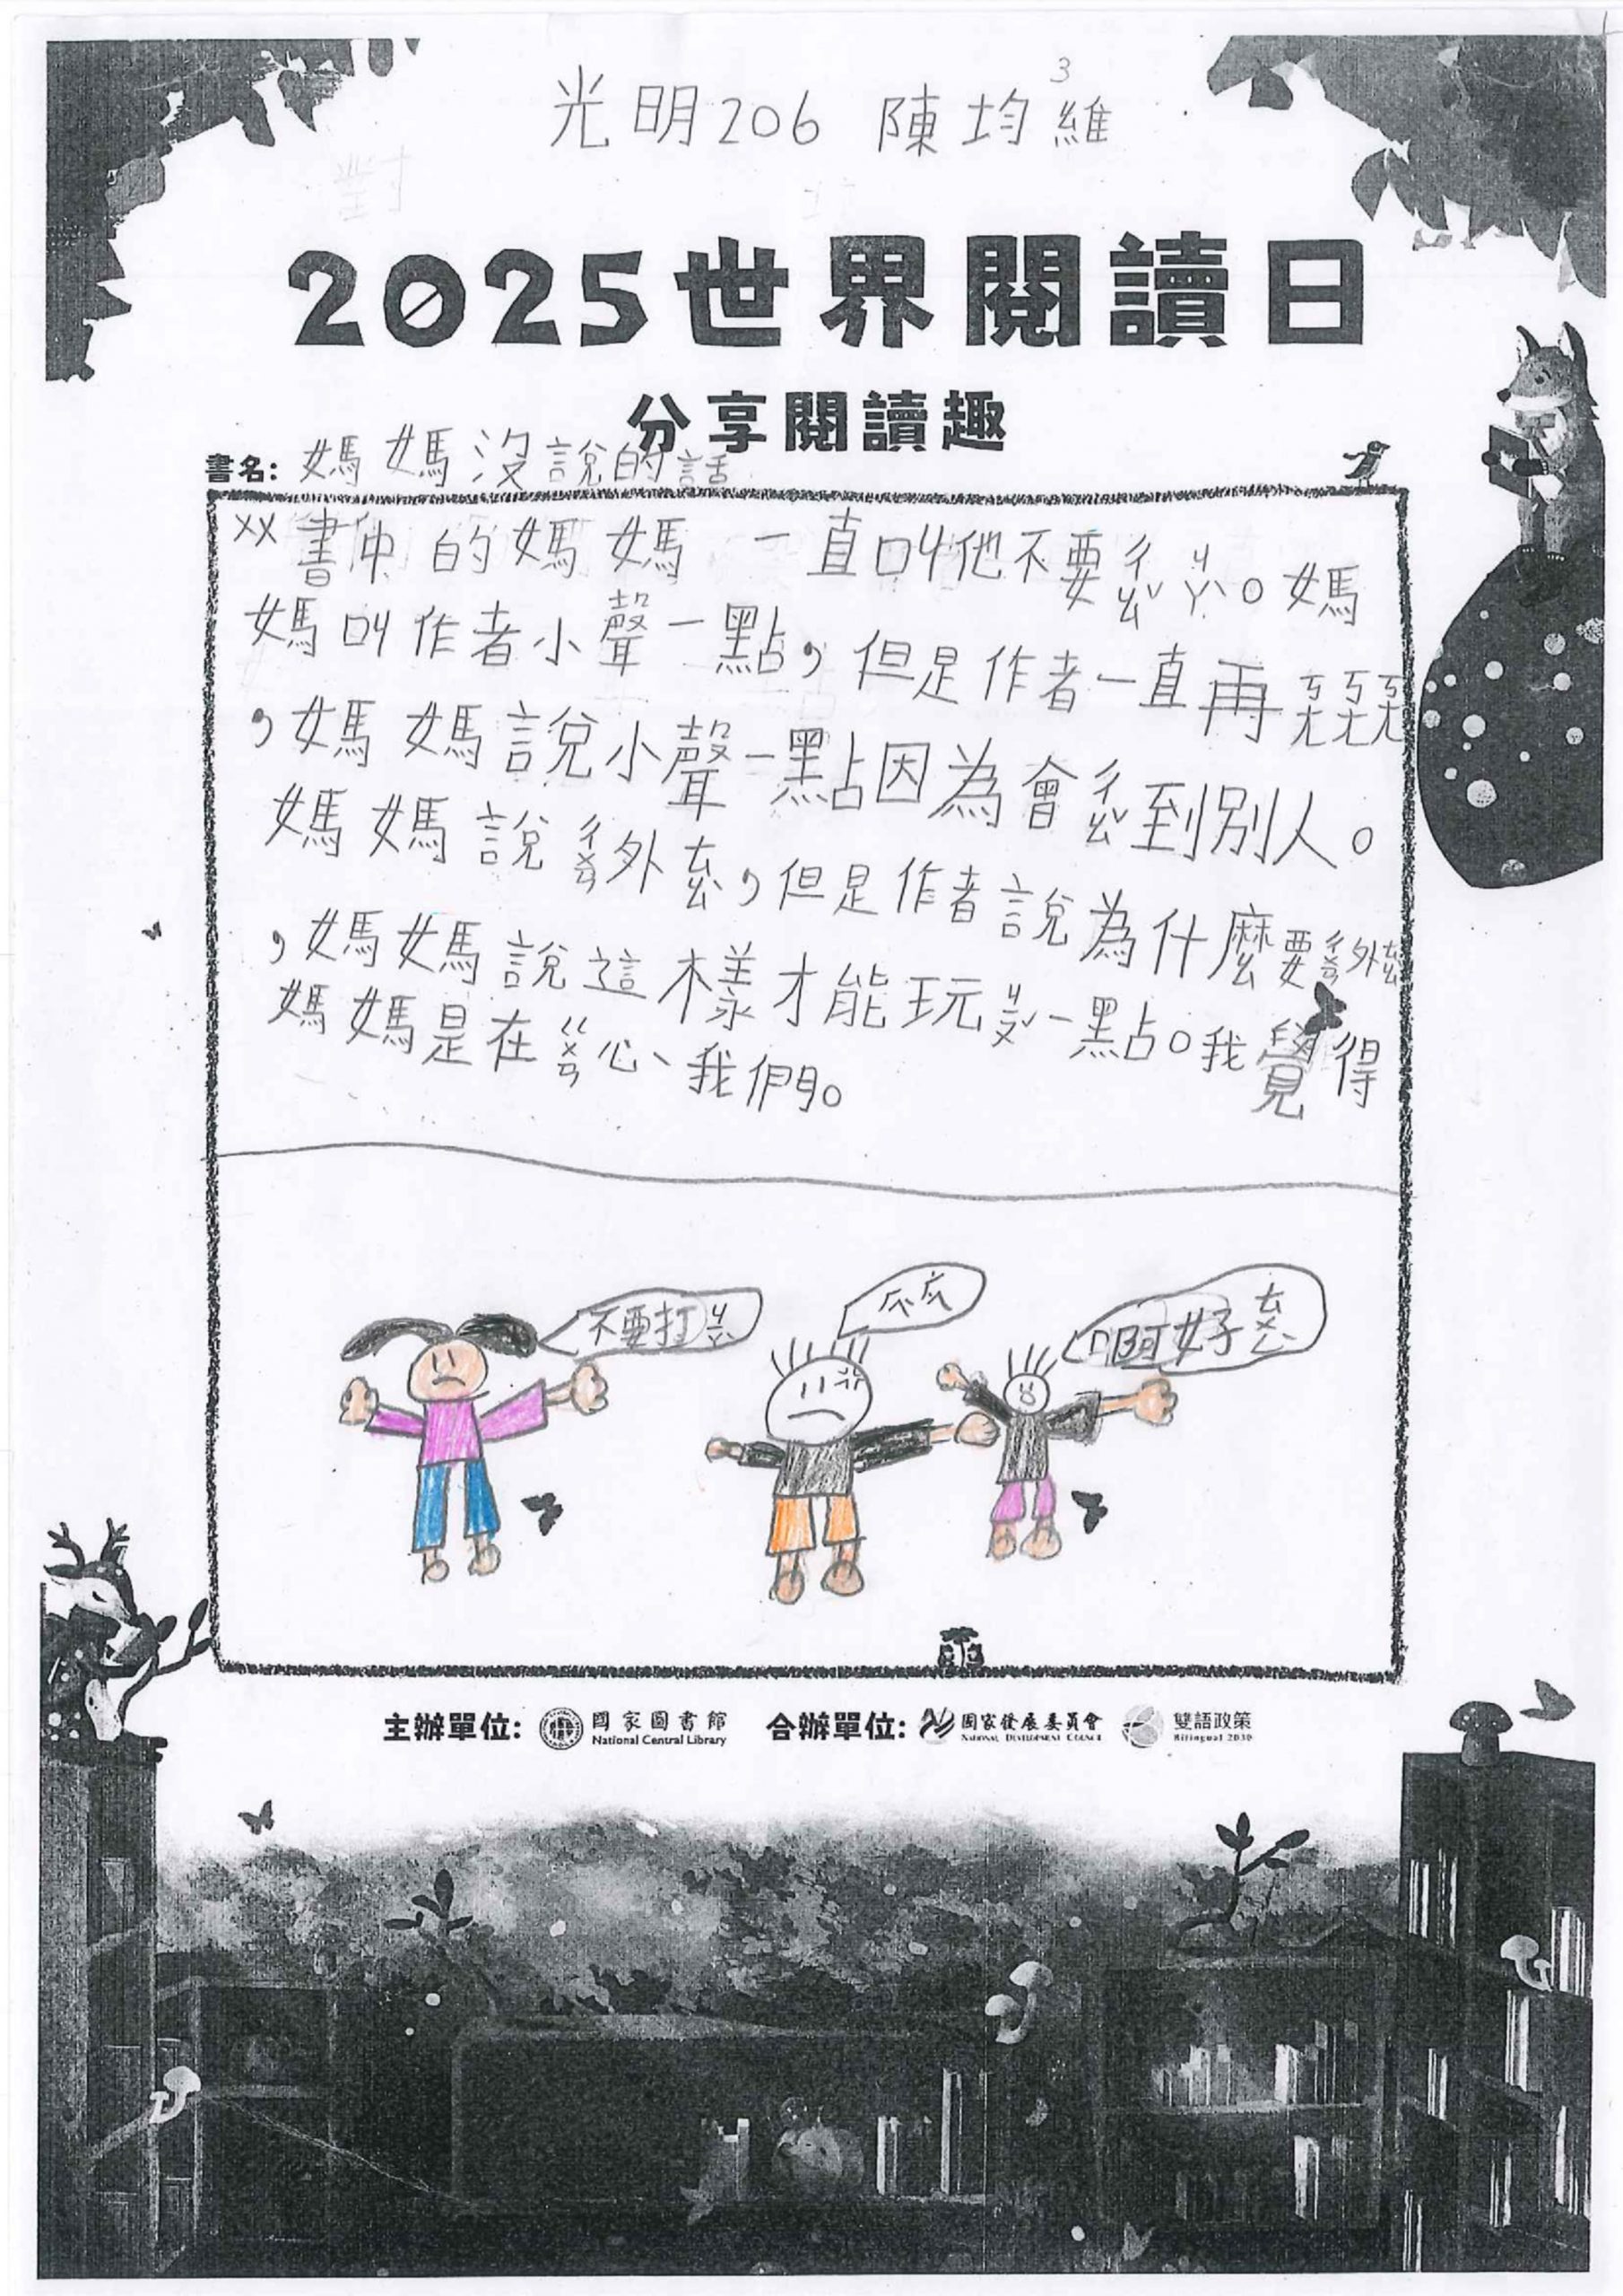 光明206 陳均維
3
2025世界閱讀日
分享閱讀趣
書名: 媽媽沒說的話
××書中的媽媽 一直叫他不要ㄔㄠˇㄐㄧㄚˋ。媽
媽叫作者小聲一點,但是作者一直再
,媽媽說小聲一點因為會ㄔㄠˇ到別人。
媽媽說ㄔㄨㄢ外ㄊㄠˋ,但是作者說為什麼要ㄔㄨㄢ外ㄊㄠˋ
,媽媽說這樣才能玩ㄐㄧㄡˇ一點。我覺得
媽媽是在ㄍㄨㄢ心、我們。
不要打ㄐㄧㄚˋ
啊好
主辦單位: 國家圖書館 National Central Library 合辦單位: 國家發展委員會 National Development Council 雙語政策 Bilingual 2030